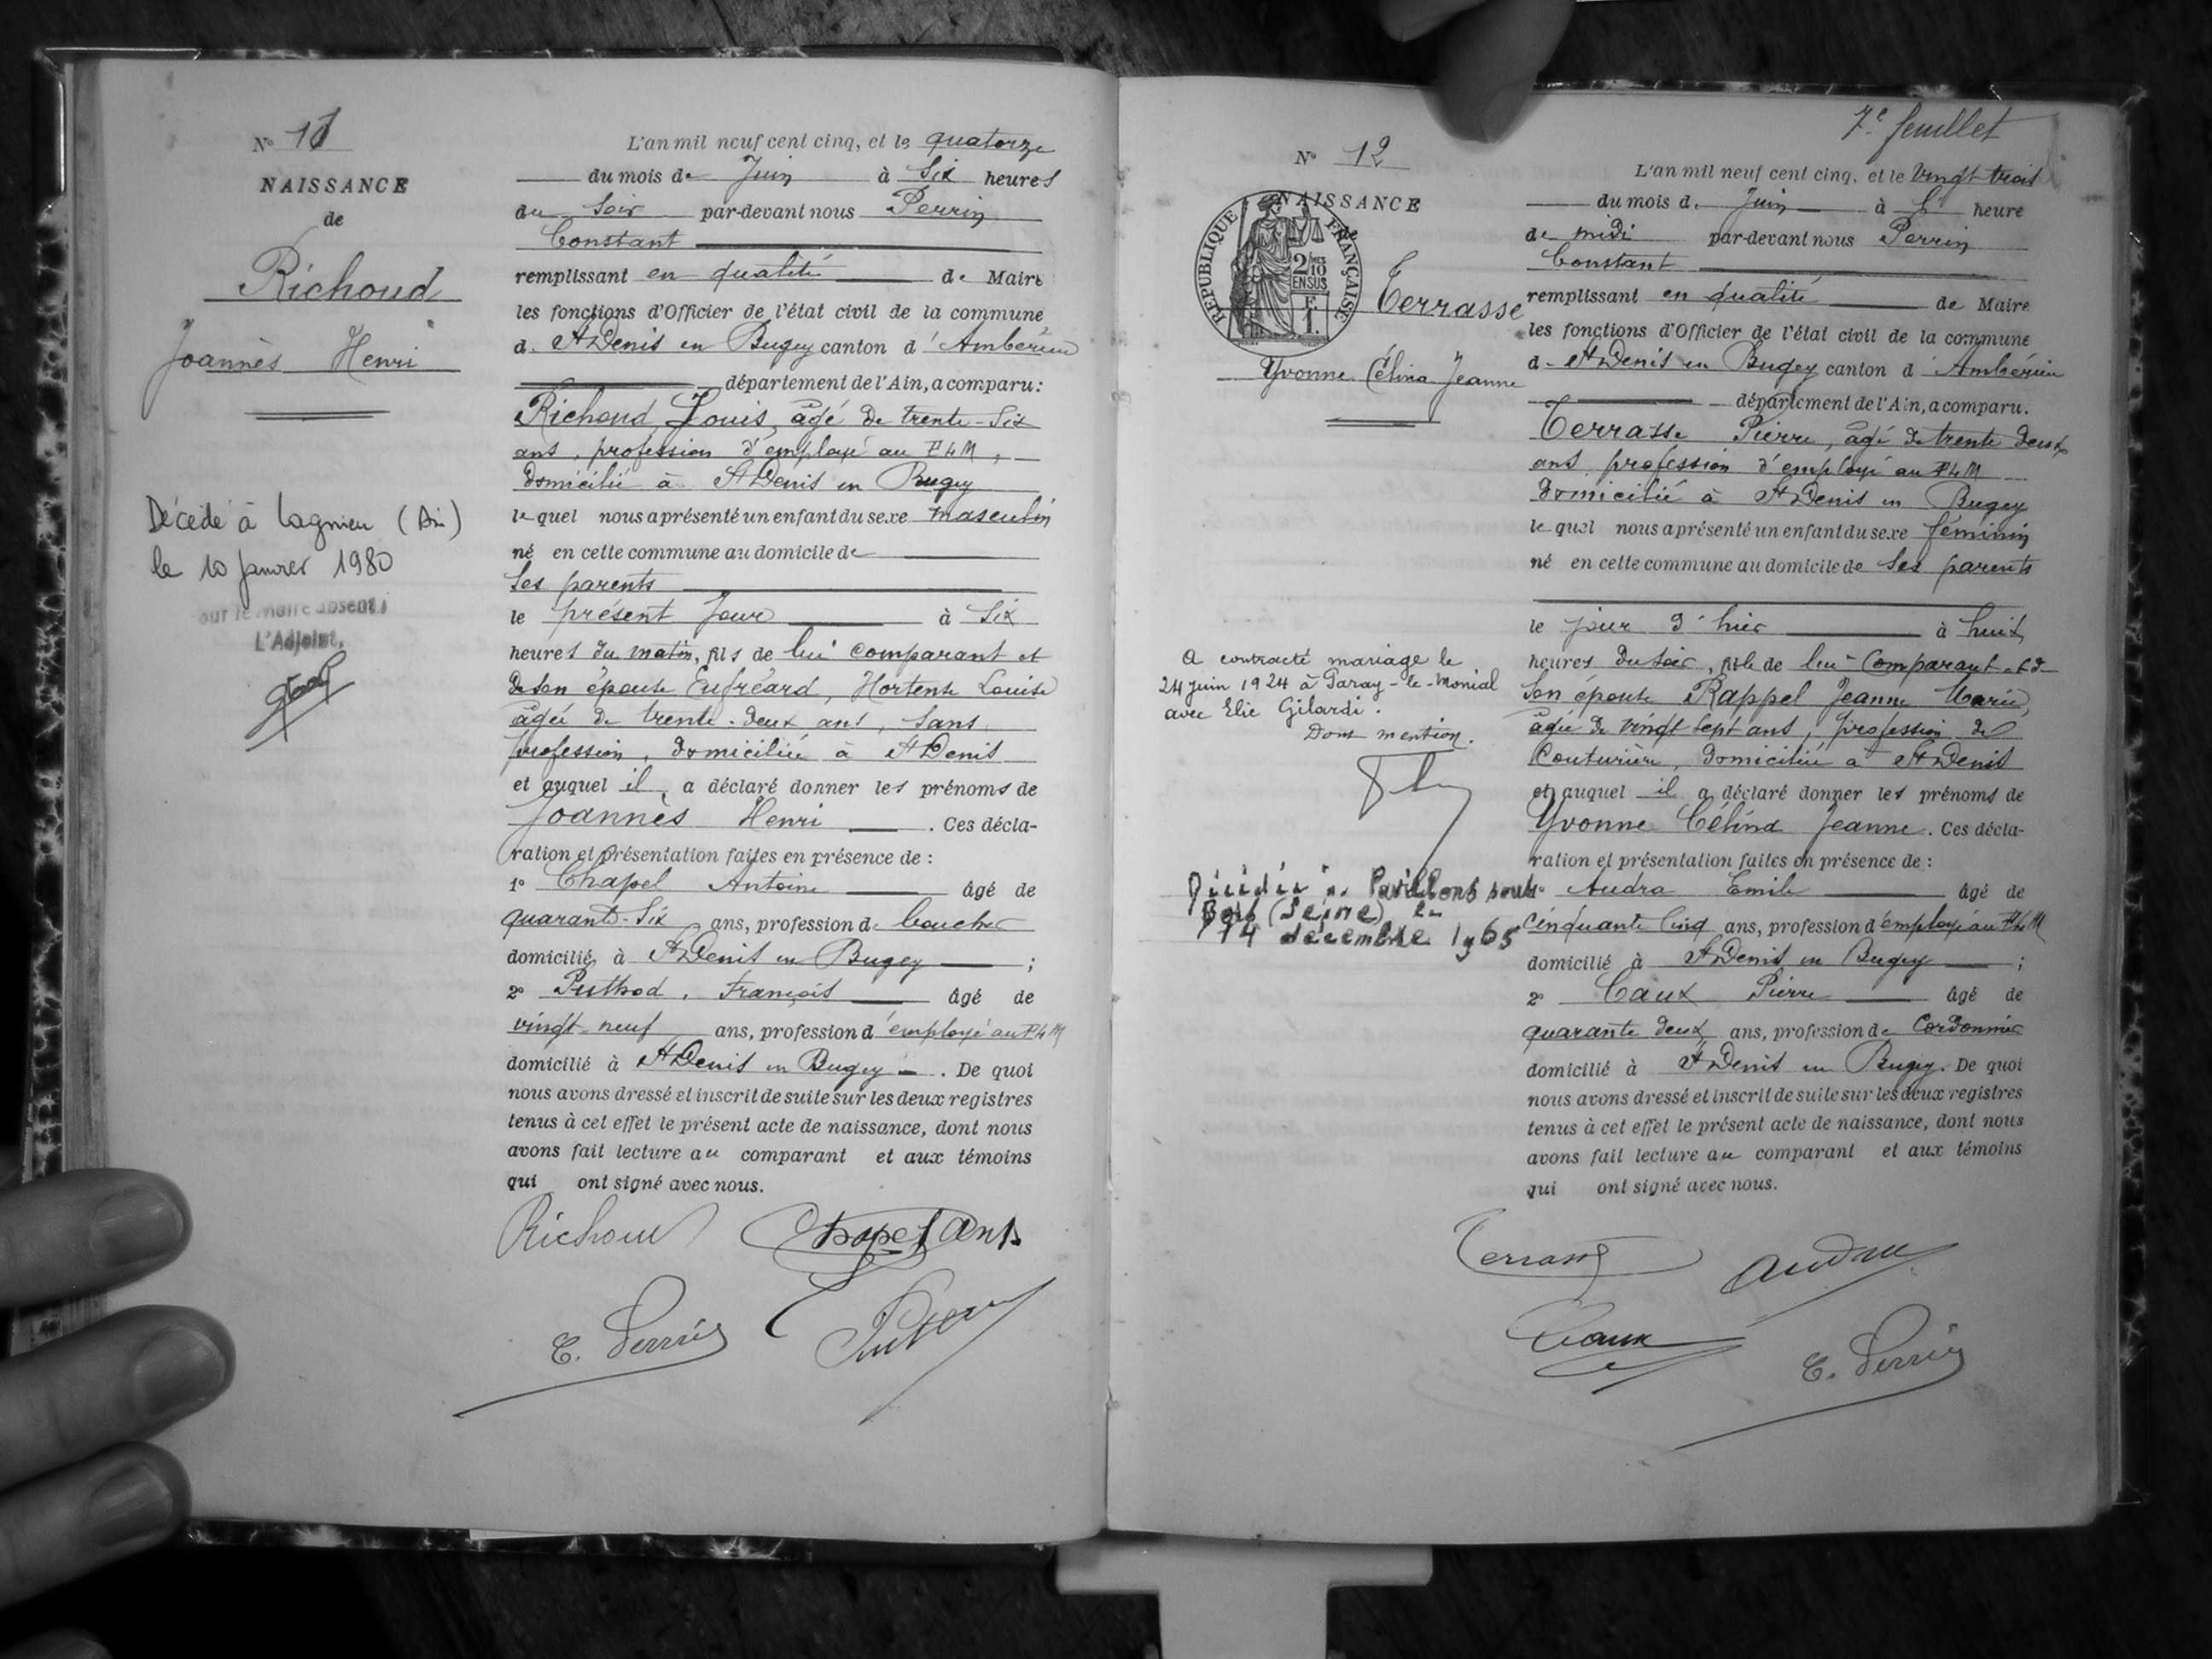 N° 11
NAISSANCE
de
Richoud
Joannès Henri
Décédé à Lagnieu (Ain)
le 10 Janvier 1980
our le Maire absent,
L'Adjoint,
L'an mil neuf cent cinq, et le quatorze
du mois de Juin à Six heures
du Soir par-devant nous Perrin
Constant
remplissant en qualité de Maire
les fonctions d'Officier de l'état civil de la commune
d. St Denis en Bugey canton d'Ambérieu
département de l'Ain, a comparu:
Richoud Louis, âgé de trente-Six
ans, profession d'employé au PLM,
domicilié à St Denis en Bugey
lequel nous a présenté un enfant du sexe masculin
né en cette commune au domicile de
Ses parents
le présent Jour à Six
heures du matin, fils de lui comparant et
de Son épouse Eufréard, Hortense Louise
âgée de trente-deux ans, Sans
profession, domiciliée à St Denis
et auquel il a déclaré donner les prénoms de
Joannès Henri. Ces décla-
ration et présentation faites en présence de :
1° Chapel Antoine âgé de
quarante-Six ans, profession de boucher
domicilié à St Denis en Bugey ;
2° Puthod, François âgé de
vingt-neuf ans, profession d'employé au PLM
domicilié à St Denis en Bugey. De quoi
nous avons dressé et inscrit de suite sur les deux registres
tenus à cet effet le présent acte de naissance, dont nous
avons fait lecture au comparant et aux témoins
qui ont signé avec nous.
Richoud Chapel Ant.
C. Perrin Puthod
7e feuillet
N° 12
NAISSANCE
de
RÉPUBLIQUE FRANÇAISE
2/10 EN SUS
Terrasse
Yvonne Célina Jeanne
A contracté mariage le
24 Juin 1924 à Paray-le-Monial
avec Elie Gilardi.
Dont mention.
Décédée à Pavillons sous
Bois (Seine) le
14 décembre 1965
L'an mil neuf cent cinq, et le Vingt trois
du mois de Juin à heure
de midi par-devant nous Perrin
Constant
remplissant en qualité de Maire
les fonctions d'Officier de l'état civil de la commune
d. St Denis en Bugey canton d'Ambérieu
département de l'Ain, a comparu.
Terrasse Pierre, âgé de trente deux
ans, profession d'employé au PLM
domicilié à St Denis en Bugey
lequel nous a présenté un enfant du sexe féminin
né en cette commune au domicile de Ses parents
le jour d'hier à huit
heures du Soir, fille de lui Comparant et de
Son épouse Rappel Jeanne Marie,
âgée de vingt Sept ans, profession de
Couturière, domiciliée à St Denis
et auquel il a déclaré donner les prénoms de
Yvonne Célina Jeanne. Ces décla-
ration et présentation faites en présence de :
1° Audra Emile âgé de
cinquante Cinq ans, profession d'employé au PLM
domicilié à St Denis en Bugey ;
2° Caux Pierre âgé de
quarante deux ans, profession de Cordonnier
domicilié à St Denis en Bugey. De quoi
nous avons dressé et inscrit de suite sur les deux registres
tenus à cet effet le présent acte de naissance, dont nous
avons fait lecture au comparant et aux témoins
qui ont signé avec nous.
Terrasse Audra
Caux C. Perrin